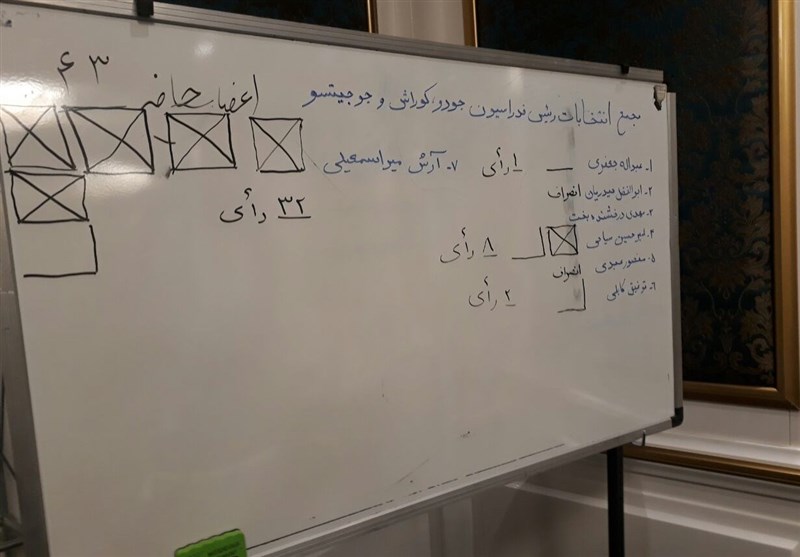 اعضاء حاضر ۴۳
مجمع انتخابات رئیس فدراسیون جودو، کوراش و جوجیتسو
۱- عبداله جعفری — ۱ رأی
۲- ابوالفضل میدریان انصراف
۳- مهدی درخشنده بخت
۴- امیرحسین میامی ۸ رأی
۵- منصور سعیدی انصراف
۶- توفیق کابلی ۲ رأی
۷- آرش میراسمعیلی
۳۲ رأی